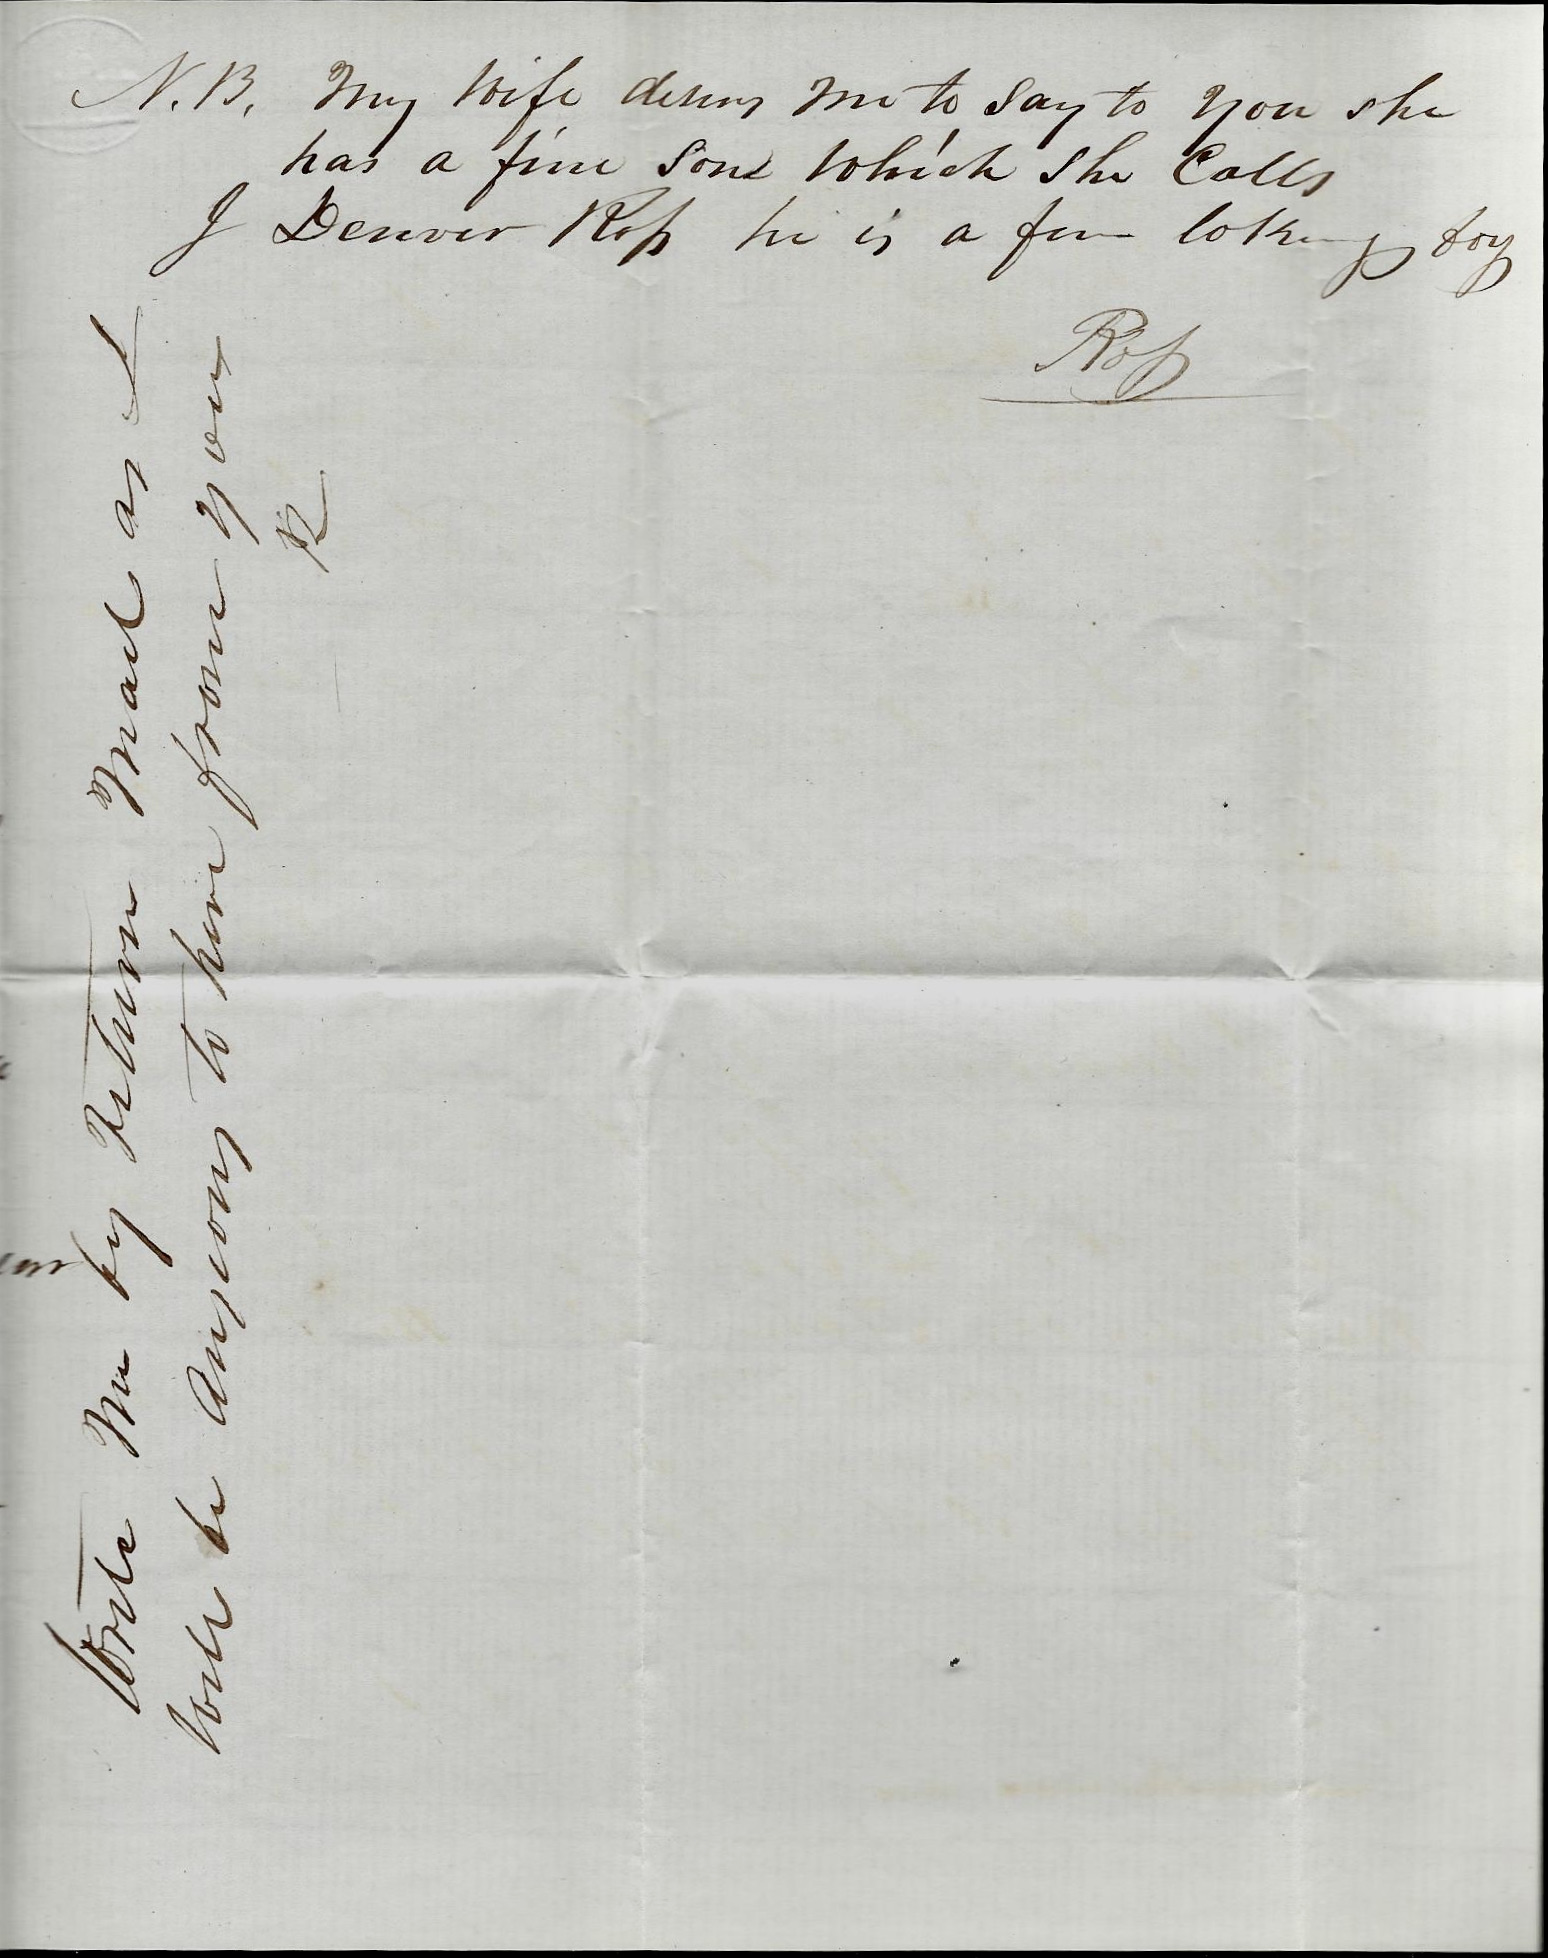 N.B. My wife desires me to say to you she
has a fine son which she Calls
J Denver Ross he is a fine loking boy
Ross
Write Me by Return Mail as I
will be Anxious to here from you
R